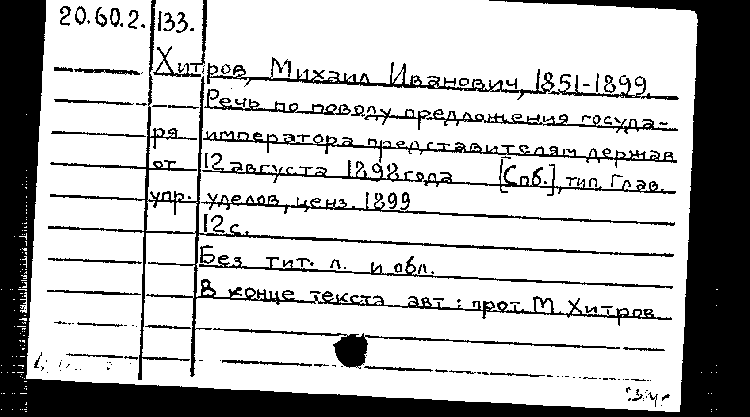 20.60.2. 133.
Хитров, Михаил Иванович, 1851-1899.
Речь по поводу предложения госуда-
ря императора представителям держав
от 12 августа 1898 года [Спб.], тип. Глав.
упр. уделов, ценз. 1899
12 с.
Без тит. л. и обл.
В конце текста авт: прот. М. Хитров